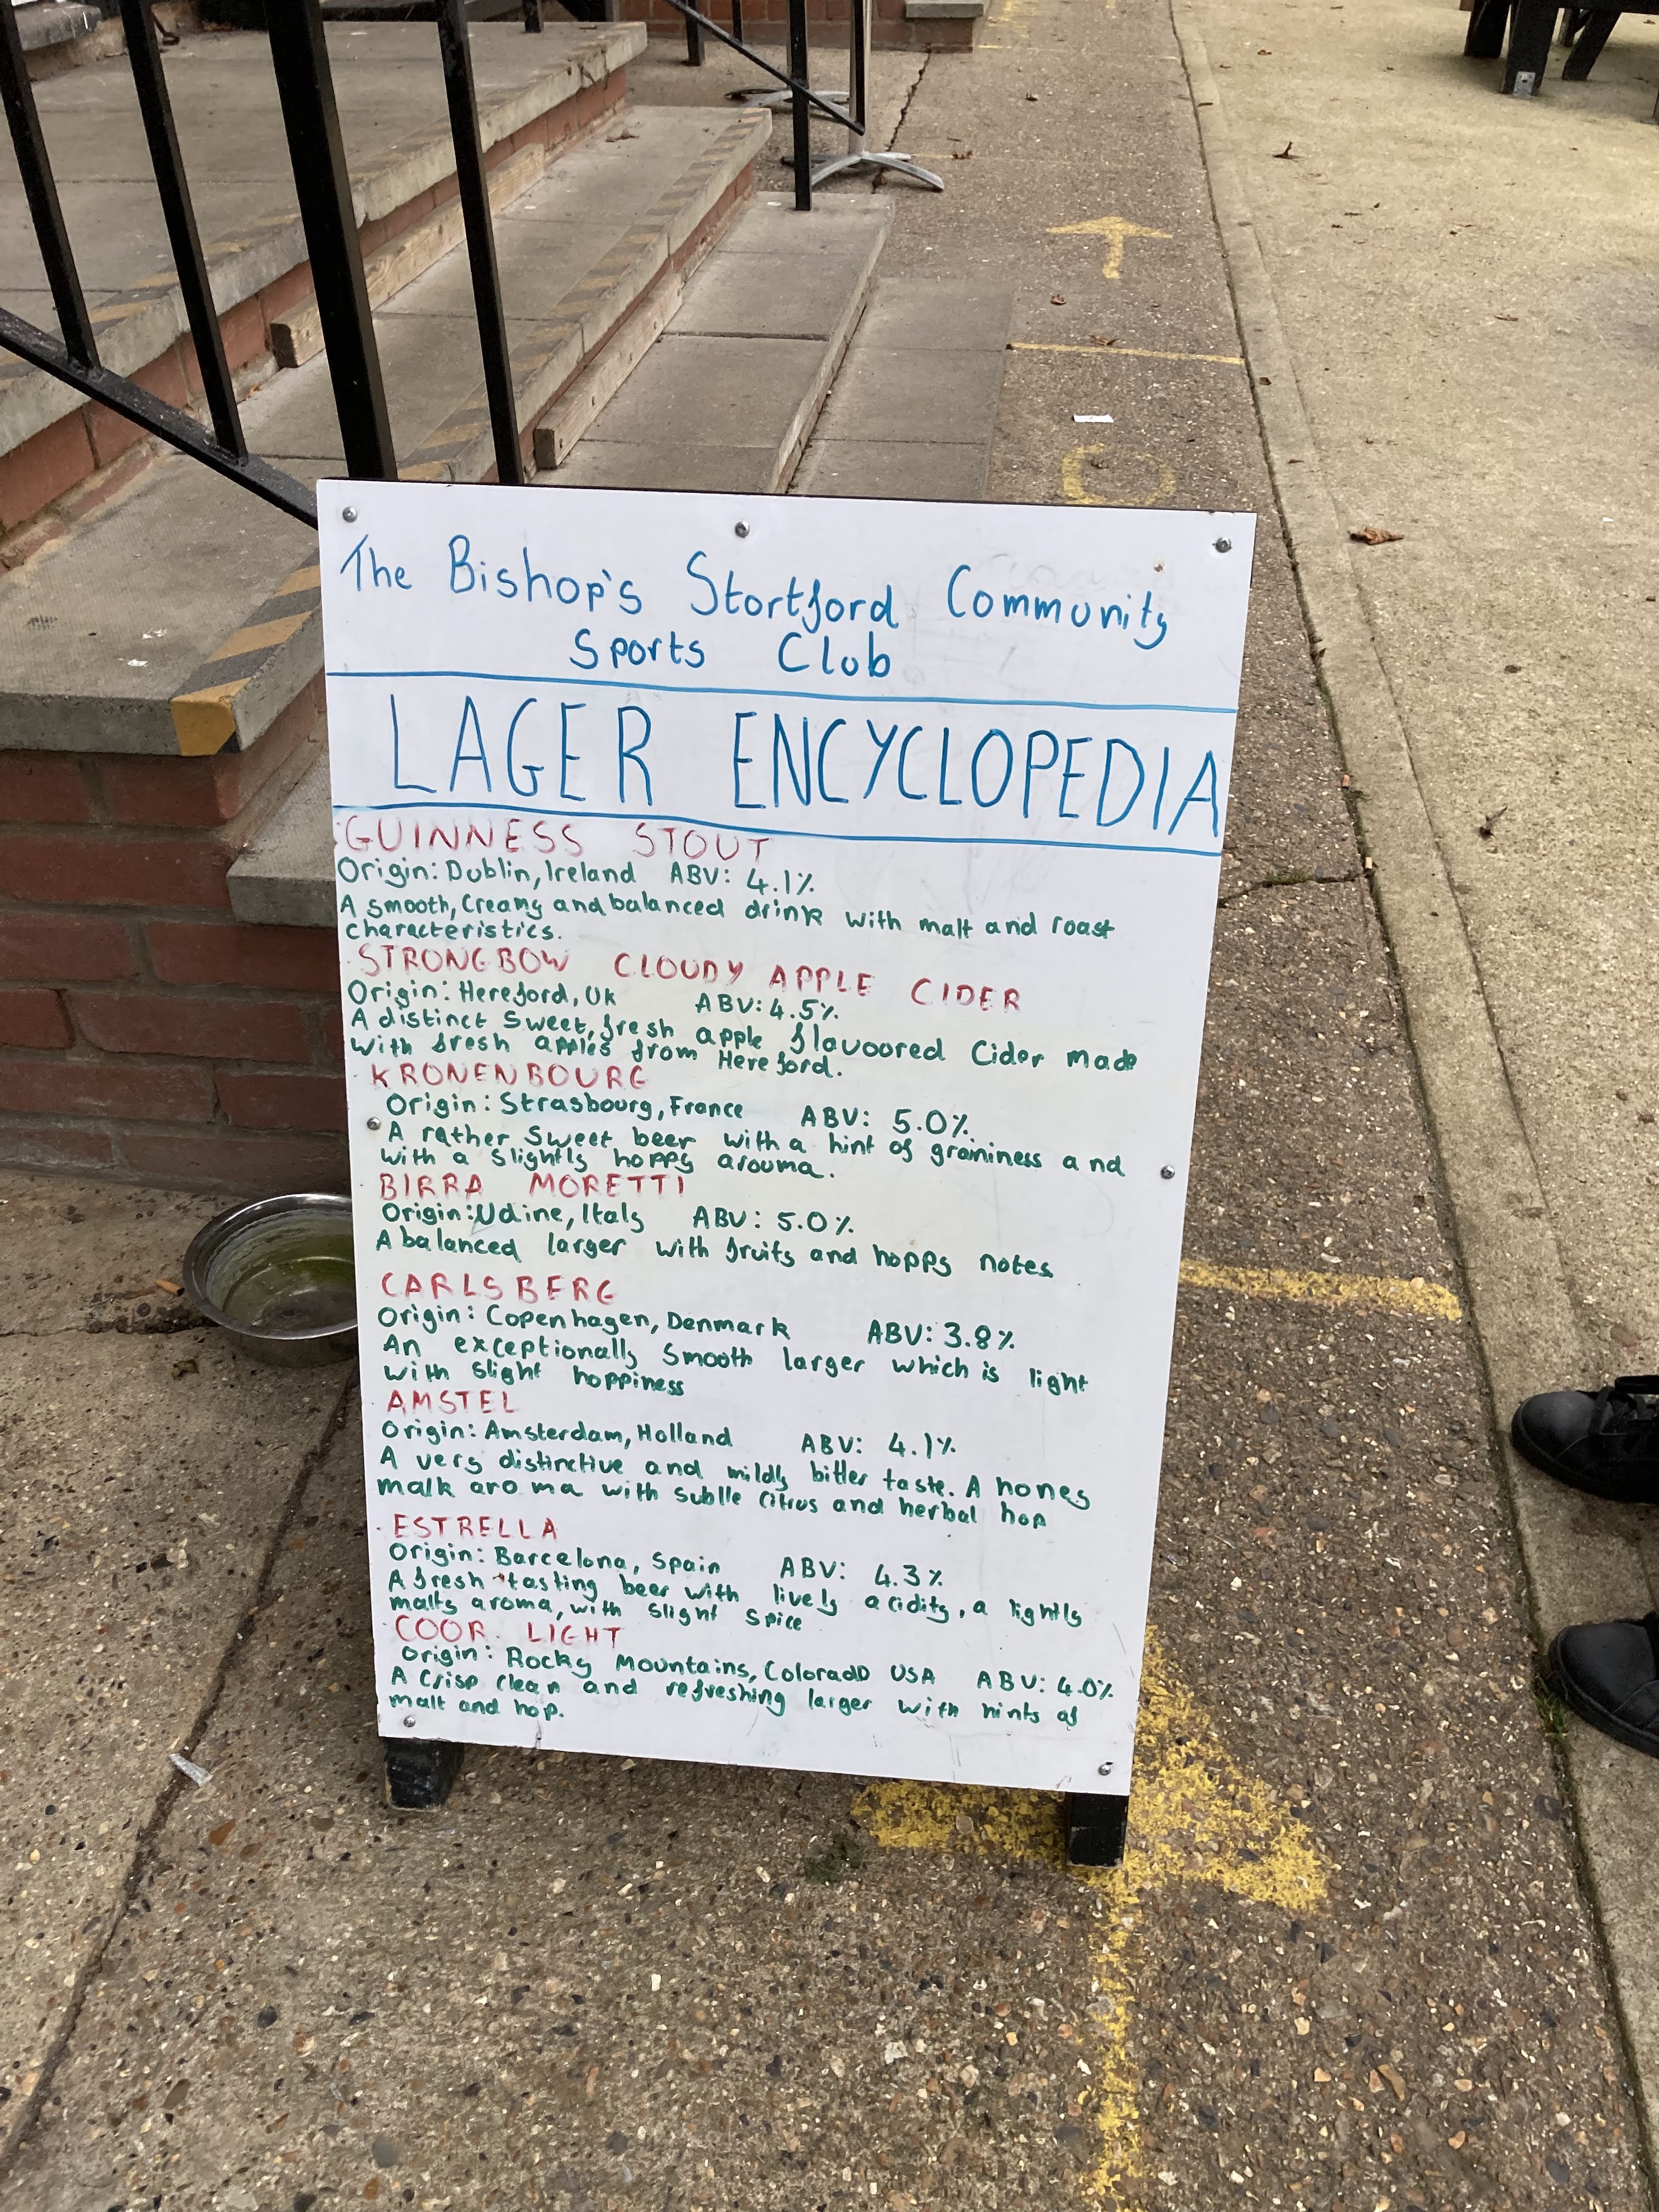 The Bishop's Stortford Community
Sports Club
LAGER ENCYCLOPEDIA
GUINNESS STOUT
Origin: Dublin, Ireland ABV: 4.1%
A smooth, Creamy and balanced drink with malt and roast
characteristics.
STRONGBOW CLOUDY APPLE CIDER
Origin: Hereford, UK ABV: 4.5%
A distinct Sweet, fresh apple flavoored Cider made
with fresh apples from Hereford.
KRONENBOURG
Origin: Strasbourg, France ABV: 5.0%
A rather Sweet beer with a hint of graininess and
with a slightly hoppy arouma.
BIRRA MORETTI
Origin: Udine, Italy ABV: 5.0%
A balanced larger with fruits and hoppy notes
CARLSBERG
Origin: Copenhagen, Denmark ABV: 3.8%
An exceptionally smooth larger which is light
with slight hoppiness
AMSTEL
Origin: Amsterdam, Holland ABV: 4.1%
A very distinctive and mildly bitter taste. A honey
malk aroma with subtle citrus and herbal hop
ESTRELLA
Origin: Barcelona, Spain ABV: 4.3%
A fresh tasting beer with lively acidity, a lightly
malty aroma, with slight spice
COOR LIGHT
Origin: Rocky Mountains, Colorado USA ABV: 4.0%
A Crisp clean and refreshing larger with hints of
malt and hop.